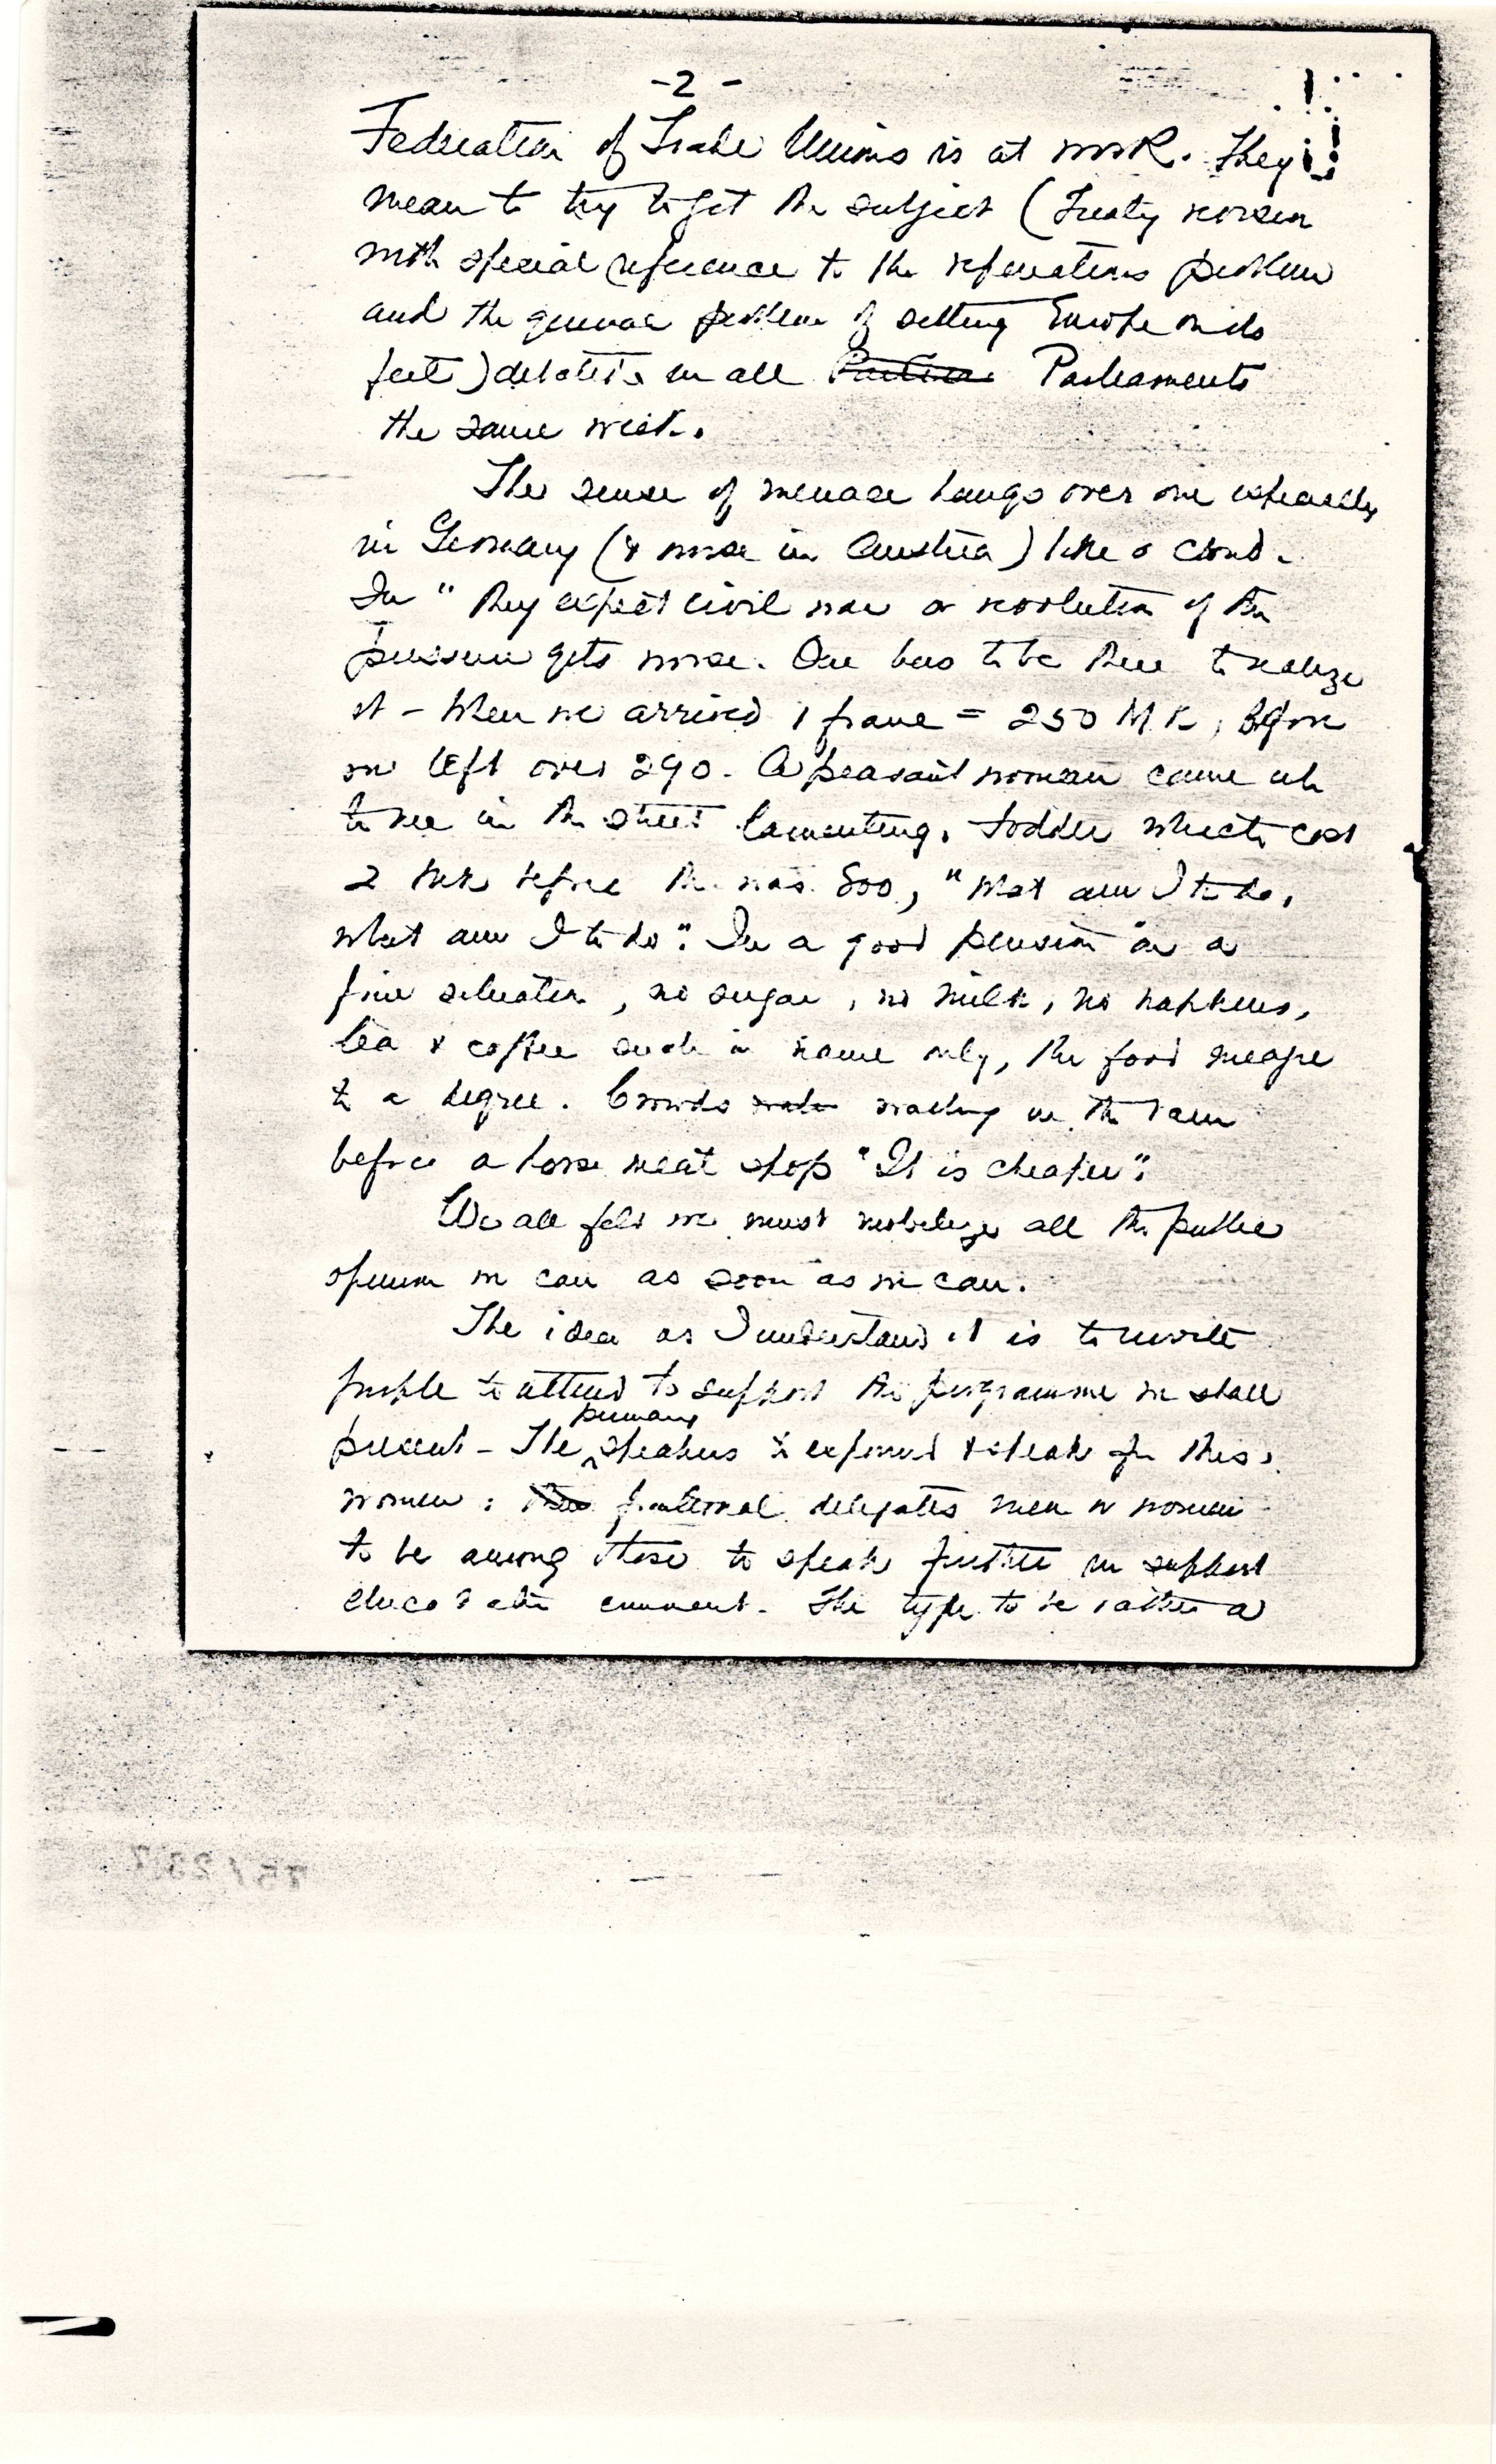 -2-
Federation of Trade Unions is at work. They
mean to try to get the subject (Treaty revision
with special reference to the reparations problem
and the general problem of setting Europe on its
feet) debated in all Parliaments
the same week.
The sense of menace hangs over one especially
in Germany (& worse in Austria) like a cloud.
In " they expect civil war or revolution if the
pressure gets worse. One has to be there to realize
it - When we arrived 1 franc = 250 M K, before
we left over 290. A peasant woman came up
to me in the street lamenting, fodder which cost
2 before the was 800, "What am I to do,
what am I to do". In a good pension in a
fine situation, no sugar, no milk, no napkins,
tea & coffee such in name only, the food meagre
to a degree. Crowds waiting in the rain
before a horse meat shop "It is cheaper".
We all felt we must mobilize all the public
opinion we can as soon as we can.
The idea as I understand it is to invite
people to attend to support the programme we shall
present - The primary speakers to expound & speak for this,
women; fraternal delegates men or women
to be among those to speak further in support
comment. The type to be rather a